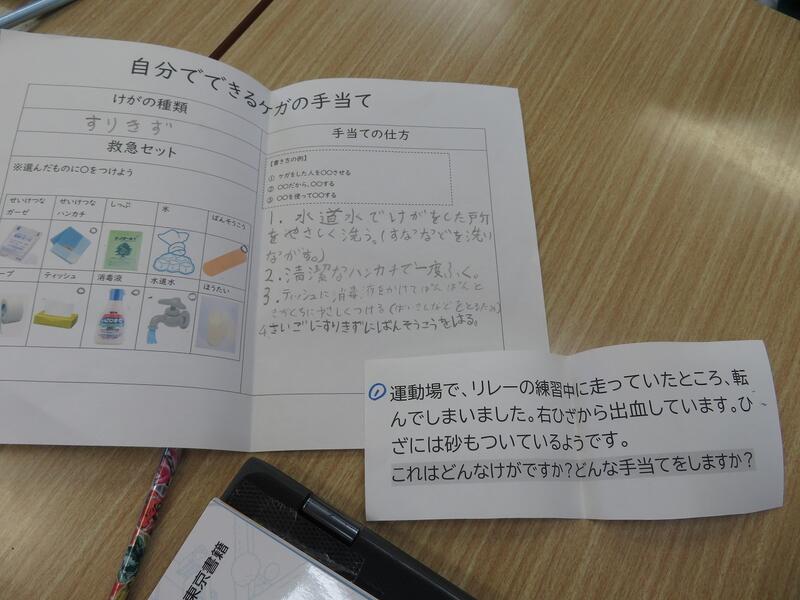 自分でできるケガの手当て
けがの種類
すりきず
救急セット
※選んだものに○をつけよう
せいけつな
ガーゼ
せいけつな
ハンカチ
しっぷ
氷
ばんそうこう
ープ
ティッシュ
消毒液
水道水
ほうたい
手当ての仕方
【書き方の例】
① ケガをした人を○○させる
② ○○だから、○○する
③ ○○を使って○○する
1. 水道水でけがをした所
をやさしく洗う。(すななどを洗い
ながす。)
2. 清潔なハンカチで一度ふく。
3. ティッシュに消毒液をかけてぽんぽんと
きずぐちにやさしくつける(ばいきんなどをとるため)
4 さいごにすりきずにばんそうこうをはる。
① 運動場で、リレーの練習中に走っていたところ、転
んでしまいました。右ひざから出血しています。ひ
ざには砂もついているようです。
これはどんなけがですか?どんな手当てをしますか?
東京書籍